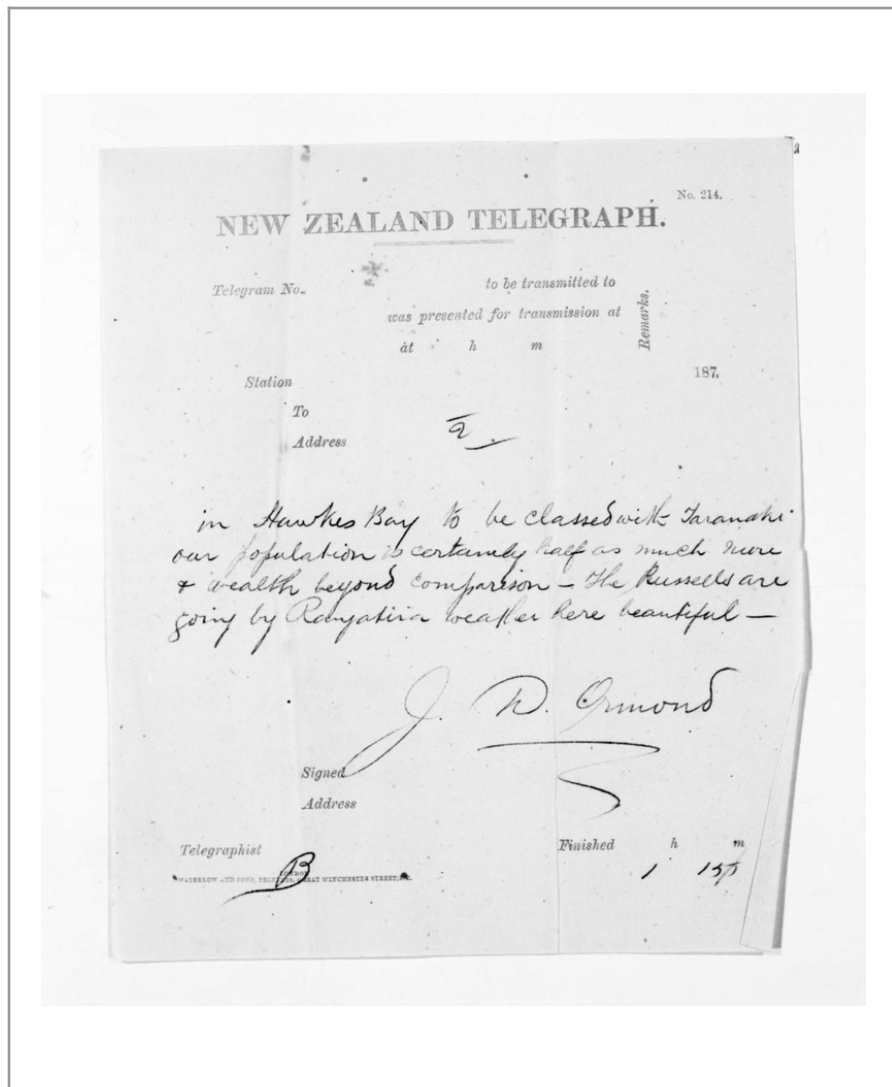 No. 214.
NEW ZEALAND TELEGRAPH.
Telegram No. to be transmitted to
was presented for transmission at
at h m
Remarks.
Station 187
To
Address 2
in Hawkes Bay to be classed with Taranaki
our population is certainly half as much more
& wealth beyond comparison – The Russells are
going by Rangatira weather here beautiful –
J. D. Ormond
Signed
Address
Telegraphist B
Finished h m
1 15
LONDON
WATERLOW AND SONS, PRINTERS, GREAT WINCHESTER STREET,